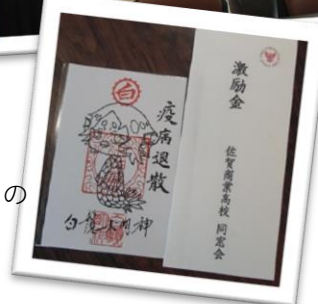 の
白
疫病退散
白龍大明神
激励金
佐賀商業高校 同窓会